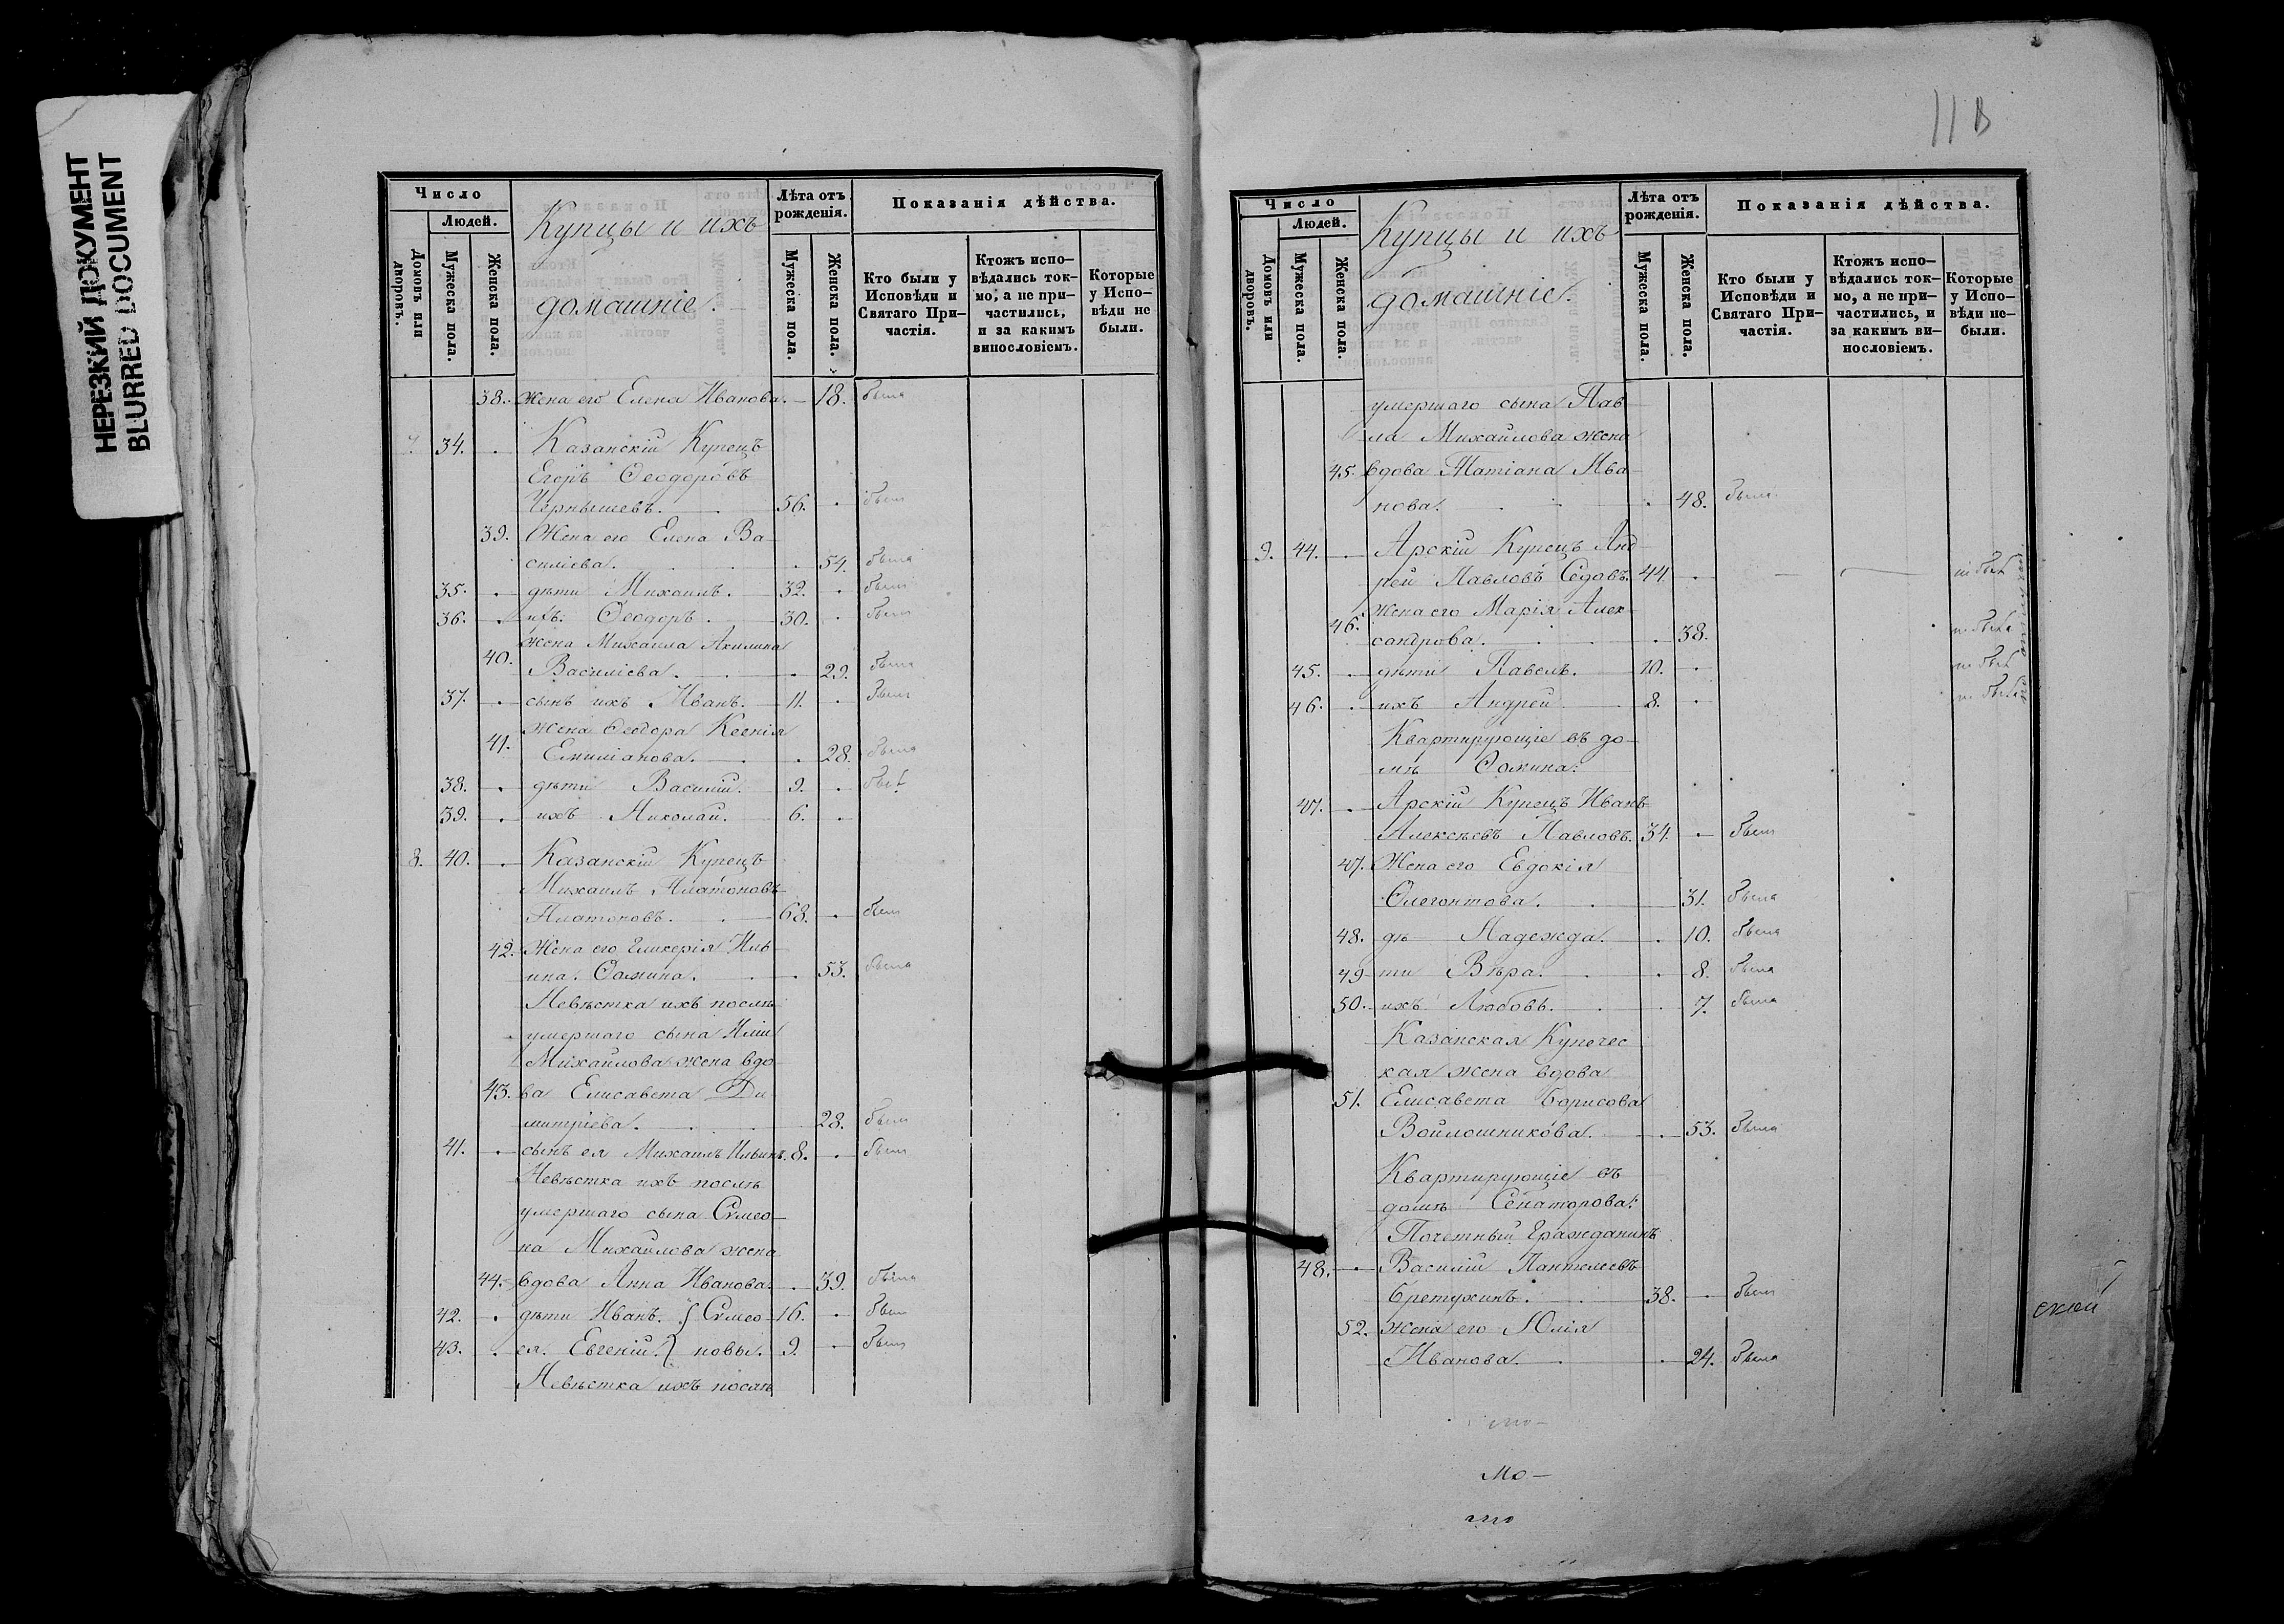 НЕРЕЗКИЙ ДОКУМЕНТ
BLURRED DOCUMENT
Число
Людей.
Домовъ или дворовъ.
Мужеска пола.
Женска пола.
Купцы и ихъ
домашніе.
Лѣта отъ рожденія.
Мужеска пола.
Женска пола.
Показанія дѣйства.
Кто были у Исповѣди и Святаго При-частія.
Ктожъ испо-вѣдались ток-мо, а не при-частились, и за какимъ винословіемъ.
Которые у Испо-вѣди не были.
38. Жена его Елена Иванова. 18. была
7. 34. Казанскій Купецъ
Егоръ Ѳеодоровъ
Чернышевъ. 56. былъ
39. Жена его Елена Ва-
силіева. 54. была
35. дѣти Михаилъ. 32. былъ
36. ихъ Ѳеодоръ. 30. былъ
жена Михаила Акилина
40. Василіева. 29. была
37. сынъ ихъ Иванъ. 11. былъ
жена Ѳеодора Ксенія
41. Емиліанова. 28. была
38. дѣти Василій. 9. былъ
39. ихъ Николай. 6.
8. 40. Казанскій Купецъ
Михаилъ Платоновъ
Платоновъ. 68. былъ
42. Жена его Гликерія Иль-
ина. Ѳомина. 53. была
Невѣстка ихъ послѣ
умершаго сына Иліи
Михайлова жена вдо-
43. ва Елисавета Ди-
митріева. 28. была
41. сынъ ея Михаилъ Ильинъ. 8. былъ
Невѣстка ихъ послѣ
умершаго сына Сѵмео-
на Михайлова жена
44. вдова Анна Иванова. 39. была
42. дѣти Иванъ. } Сѵмео- 16. былъ
43. ея. Евгеній. } новы. 9. былъ
Невѣстка ихъ послѣ
11В
Число
Людей.
Домовъ или дворовъ.
Мужеска пола.
Женска пола.
Купцы и ихъ
домашніе.
Лѣта отъ рожденія.
Мужеска пола.
Женска пола.
Показанія дѣйства.
Кто были у Исповѣди и Святаго При-частія.
Ктожъ испо-вѣдались ток-мо, а не при-частились, и за какимъ ви-нословіемъ.
Которые у Испо-вѣди не-были.
умершаго сына Пав-
ла Михайлова жена
45. вдова Татіана Ива-
нова. 48. была
9. 44. Арскій Купецъ Анд-
рей Павловъ Сѣдовъ. 44. не былъ
Жена его Марія Алек-
46. сандрова. 38. не была
45. дѣти Павелъ. 10. не былъ
46. ихъ Андрей. 8. не былъ
Квартирующіе въ до-
мѣ Ѳомина:
47. Арскій Купецъ Иванъ
Алексѣевъ Павловъ. 34. былъ
47. Жена его Евдокія
Олегонтова. 31. была
48. дѣ- Надежда. 10. была
49. ти Вѣра. 8. была
50. ихъ Любовь. 7. была
Казанская Купечес-
кая жена вдова
51. Елисавета Борисова
Войлошникова. 53. была
Квартирующіе въ
домѣ Сенаторова:
Почетный Гражданинъ
48. Василій Пантелеевъ
Бретухинъ. 38. былъ
52. Жена его Юлія
Иванова. 24. была
ской
мо-